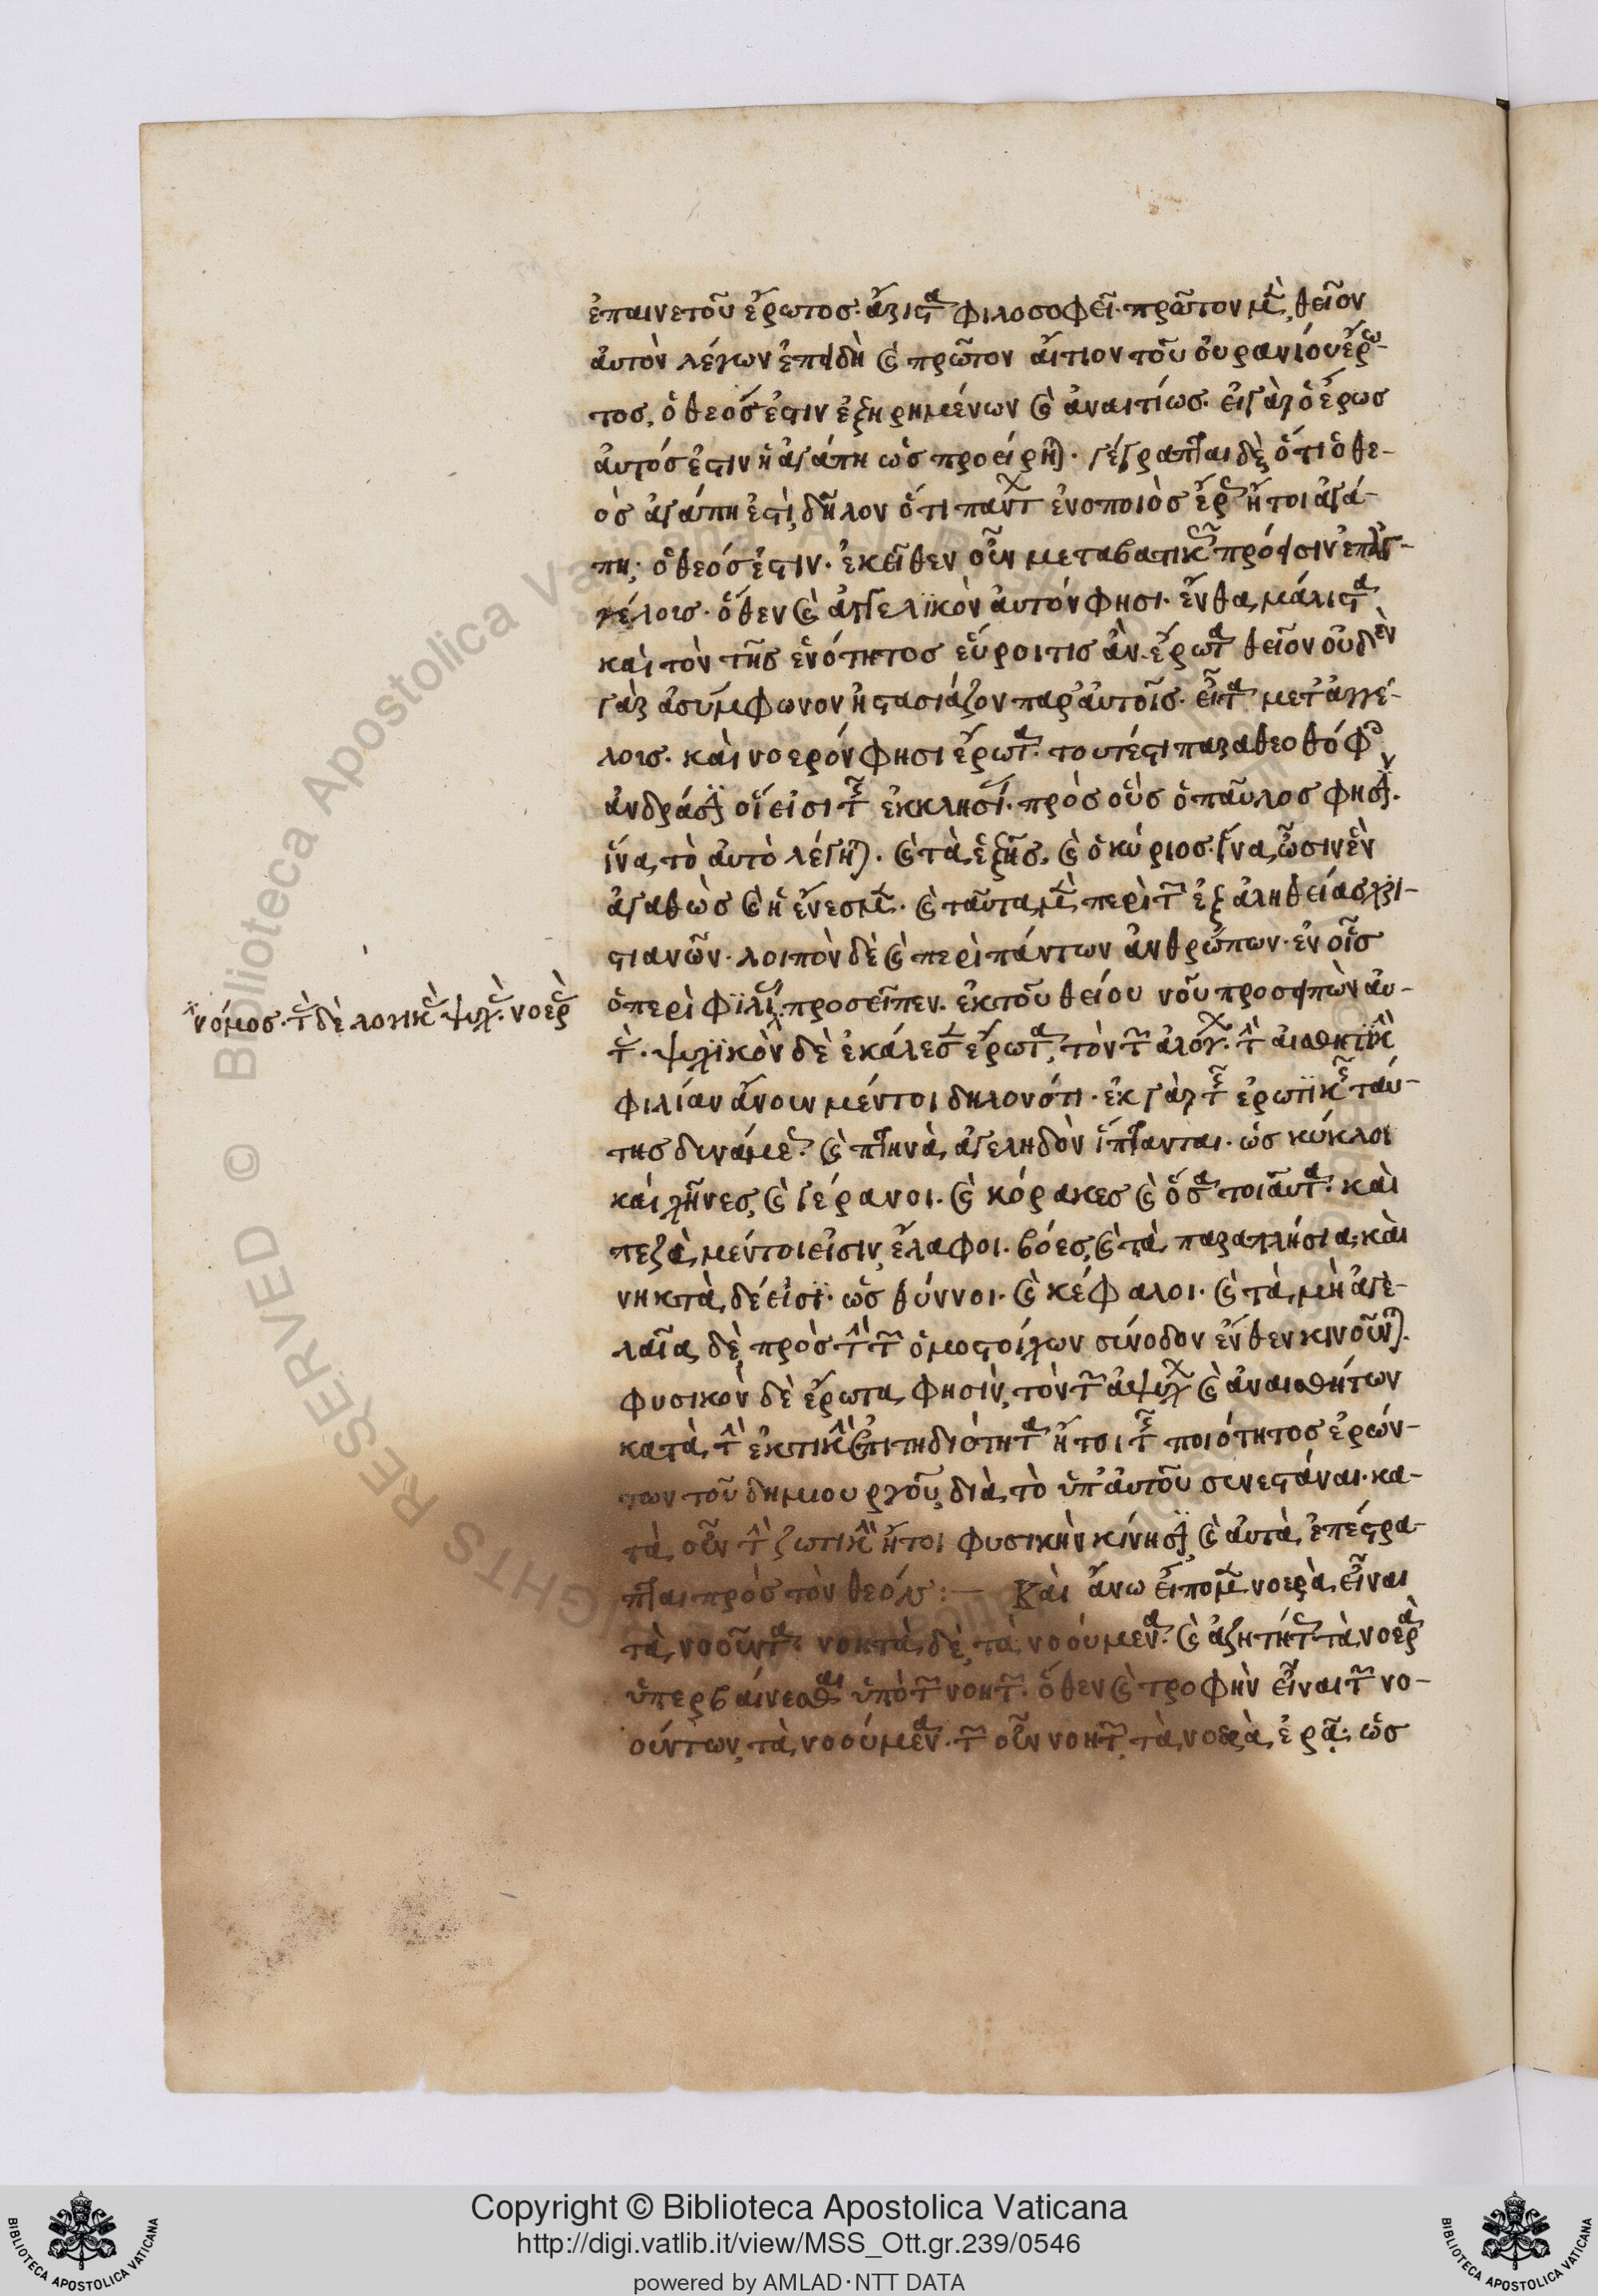 ἐπαινετοῦ ἔρωτος· ἄριστα φιλοσοφεῖ· πρῶτον μὲν, θεῖον
αὐτὸν λέγων ἐπειδὴ καὶ πρῶτον αἴτιον τοῦ οὐρανίου ἔρω-
τος, ὁ θεός ἐστιν ἐξῃρημένων καὶ ἀναιτίως· εἰ γὰρ ὁ ἔρως
αὐτός ἐστιν ἡ ἀγάπη ὡς προείρηται· γέγραπται δὲ, ὅτι ὁ θε-
ὸς ἀγάπη ἐστὶ, δῆλον ὅτι πάντων ἑνοποιὸς ἔρως ἤτοι ἀγά-
πη· ὁ θεός ἐστιν· ἐκεῖθεν οὖν μεταβατικῶς πρόεισιν ἐπ' ἀγ-
γέλοις· ὅθεν καὶ ἀγγελικὸν αὐτόν φησι· ἔνθα, μάλιστα
καὶ τὸν τῆς ἑνότητος εὕροι τις ἂν ἔρωτα θεῖον οὐδὲν
γὰρ ἀσύμφωνον ἢ στασιάζον παρ' αὐτοῖς· εἶτα μετ' ἀγγέ-
λοις· καὶ νοερόν φησι ἔρωτα· τουτέστι παρὰ θεοσόφοις
ἀνδράσιν οἵ εἰσι τῆς ἐκκλησίας· πρὸς οὓς ὁ παῦλος φησίν·
ἵνα, τὸ αὐτὸ λέγηται· καὶ τὰ, ἑξῆς, καὶ ὁ κύριος· ἵνα, ὦσιν ἓν
καθὼς καὶ ἡ ἕν ἐσμεν· καὶ ταῦτα, μὲν, περὶ τῶν ἐξ ἀληθείας χρι-
στιανῶν· λοιπὸν δὲ καὶ περὶ πάντων ἀνθρώπων· ἐν οἷς
νόμος· τοὺς δὲ λογικοὺς ψυχὰς· νοεροὺς
ὁ περὶ φιλίας προσεῖπεν· ἐκ τοῦ θείου νοῦ προσειπὼν αὐ-
τούς· ψυχϊκὸν δὲ ἐκάλεσεν ἔρωτα, τὸν τῶν ἀλόγων· τὴν αἰσθητικὴν
φιλίαν ἄνουν μέντοι δηλονότι· ἐκ γὰρ τῆς ἐρωτικῆς ταύ-
της δυνάμεως· καὶ πτηνὰ, ἀγεληδὸν ἵπτανται· ὡς κύκλοι
καὶ χῆνες, καὶ γέρανοι· καὶ κόρακες καὶ ὅσα τοιαῦτα· καὶ
πεζὰ, μέντοι εἰσιν, ἔλαφοι· βόες, καὶ τὰ, παραπλήσια· καὶ
νηκτὰ, δέ εἰσϊ· ὡς θύννοι· καὶ κέφαλοι· καὶ τὰ, μὴ ἀγε-
λαῖα, δὲ, πρὸς τὴν τῶν ὁμοστοίχων σύνοδον ἔνθεν κινοῦνται·
φυσικὸν δὲ ἔρωτα, φησὶν, τὸν τῶν ἀψύχων καὶ ἀναισθήτων
κατὰ, τὴν ἑκτικὴν ἐπιτηδειότητα ἤτοι τῆς ποιότητος ἐρών-
των τοῦ δημιουργοῦ, διὰ, τὸ ὑπ' αὐτοῦ συνεστάναι· κα-
τὰ, οὖν τὴν ζωτικὴν ἤτοι φυσικὴν κίνησιν, καὶ αὐτὰ, ἐπέστρα-
πται πρὸς τὸν θεόν :— Καὶ ἄνω εἴπομεν νοερὰ, εἶναι
τὰ, νοοῦντα· νοητὰ, δὲ, τὰ, νοούμενα· καὶ ἀζητήτως τὰ, νοερὰ
ὑπερβαίνεσθαι ὑπὸ τῶν νοητῶν· ὅθεν καὶ τροφὴν εἶναι τῶν νο-
ούντων, τὰ, νοούμενα· τῶν οὖν νοητῶν, τὰ, νοερὰ, ἐρᾷ· ὡς
Copyright © Biblioteca Apostolica Vaticana
http://digi.vatlib.it/view/MSS_Ott.gr.239/0546
powered by AMLAD·NTT DATA
BIBLIOTECA APOSTOLICA VATICANA
BIBLIOTECA APOSTOLICA VATICANA